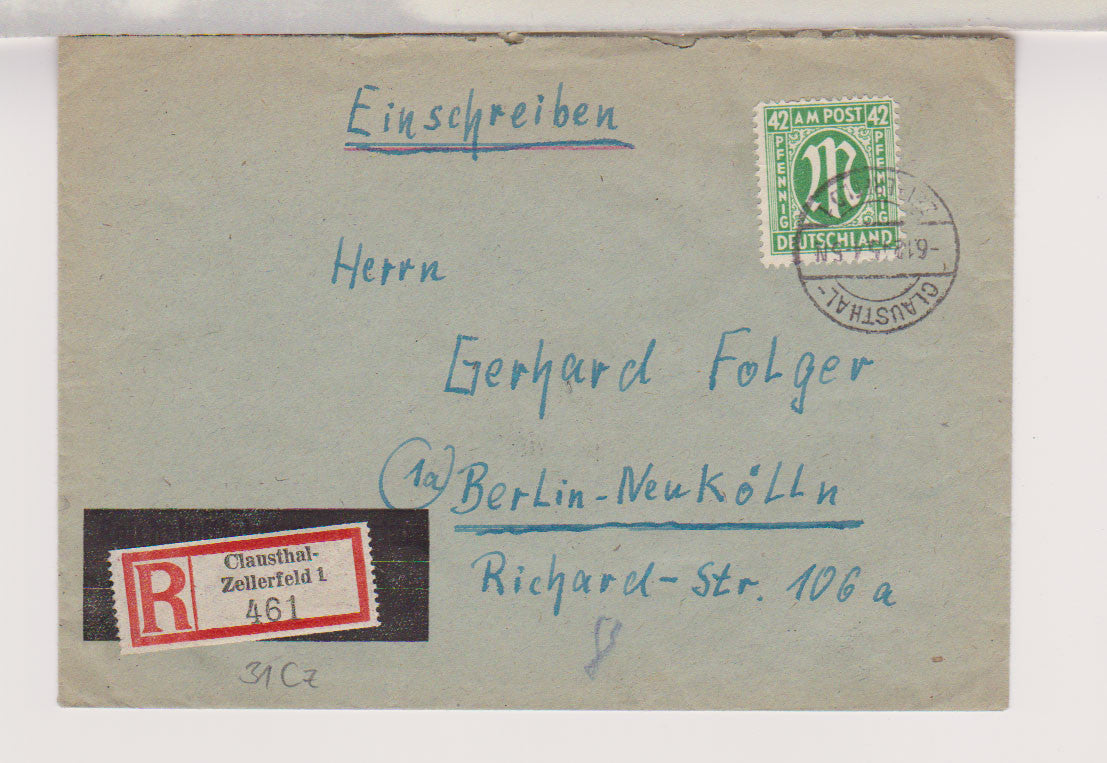 Einschreiben
42 AM POST 42
PFENNIG
PFENNIG
M
DEUTSCHLAND
CLAUSTHAL-
Herrn
Gerhard Folger
1a Berlin-Neukölln
Richard-Str. 106a
R
Clausthal-
Zellerfeld 1
461
31Cz